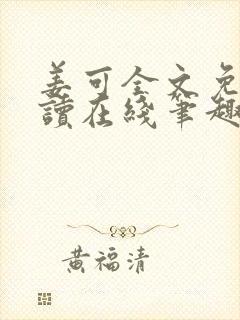 姜可全文免
讀在綫筆趣
黃福清